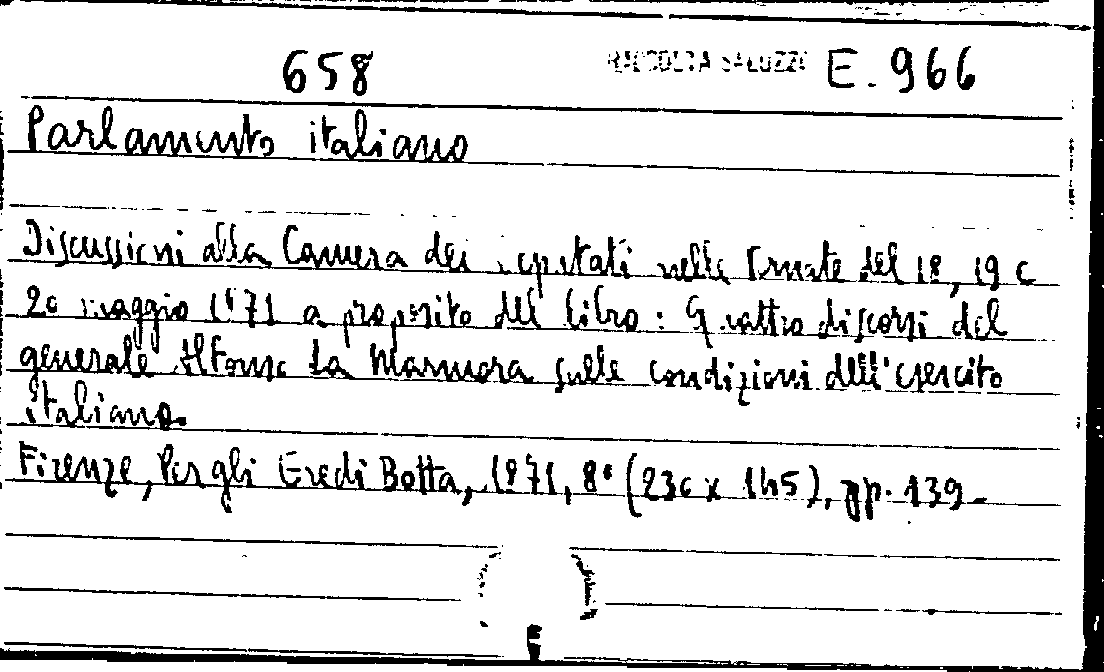 658 RACCOLTA SALUZZO E. 966
Parlamento italiano
Discussioni alla Camera dei deputati nelle tornate del 18, 19 e
20 maggio 1871 a proposito del libro: Quattro discorsi del
generale Alfonso La Marmora sulle condizioni dell'esercito
italiano.
Firenze, Per gli Eredi Botta, 1871, 8° (230 x 145), pp. 139.